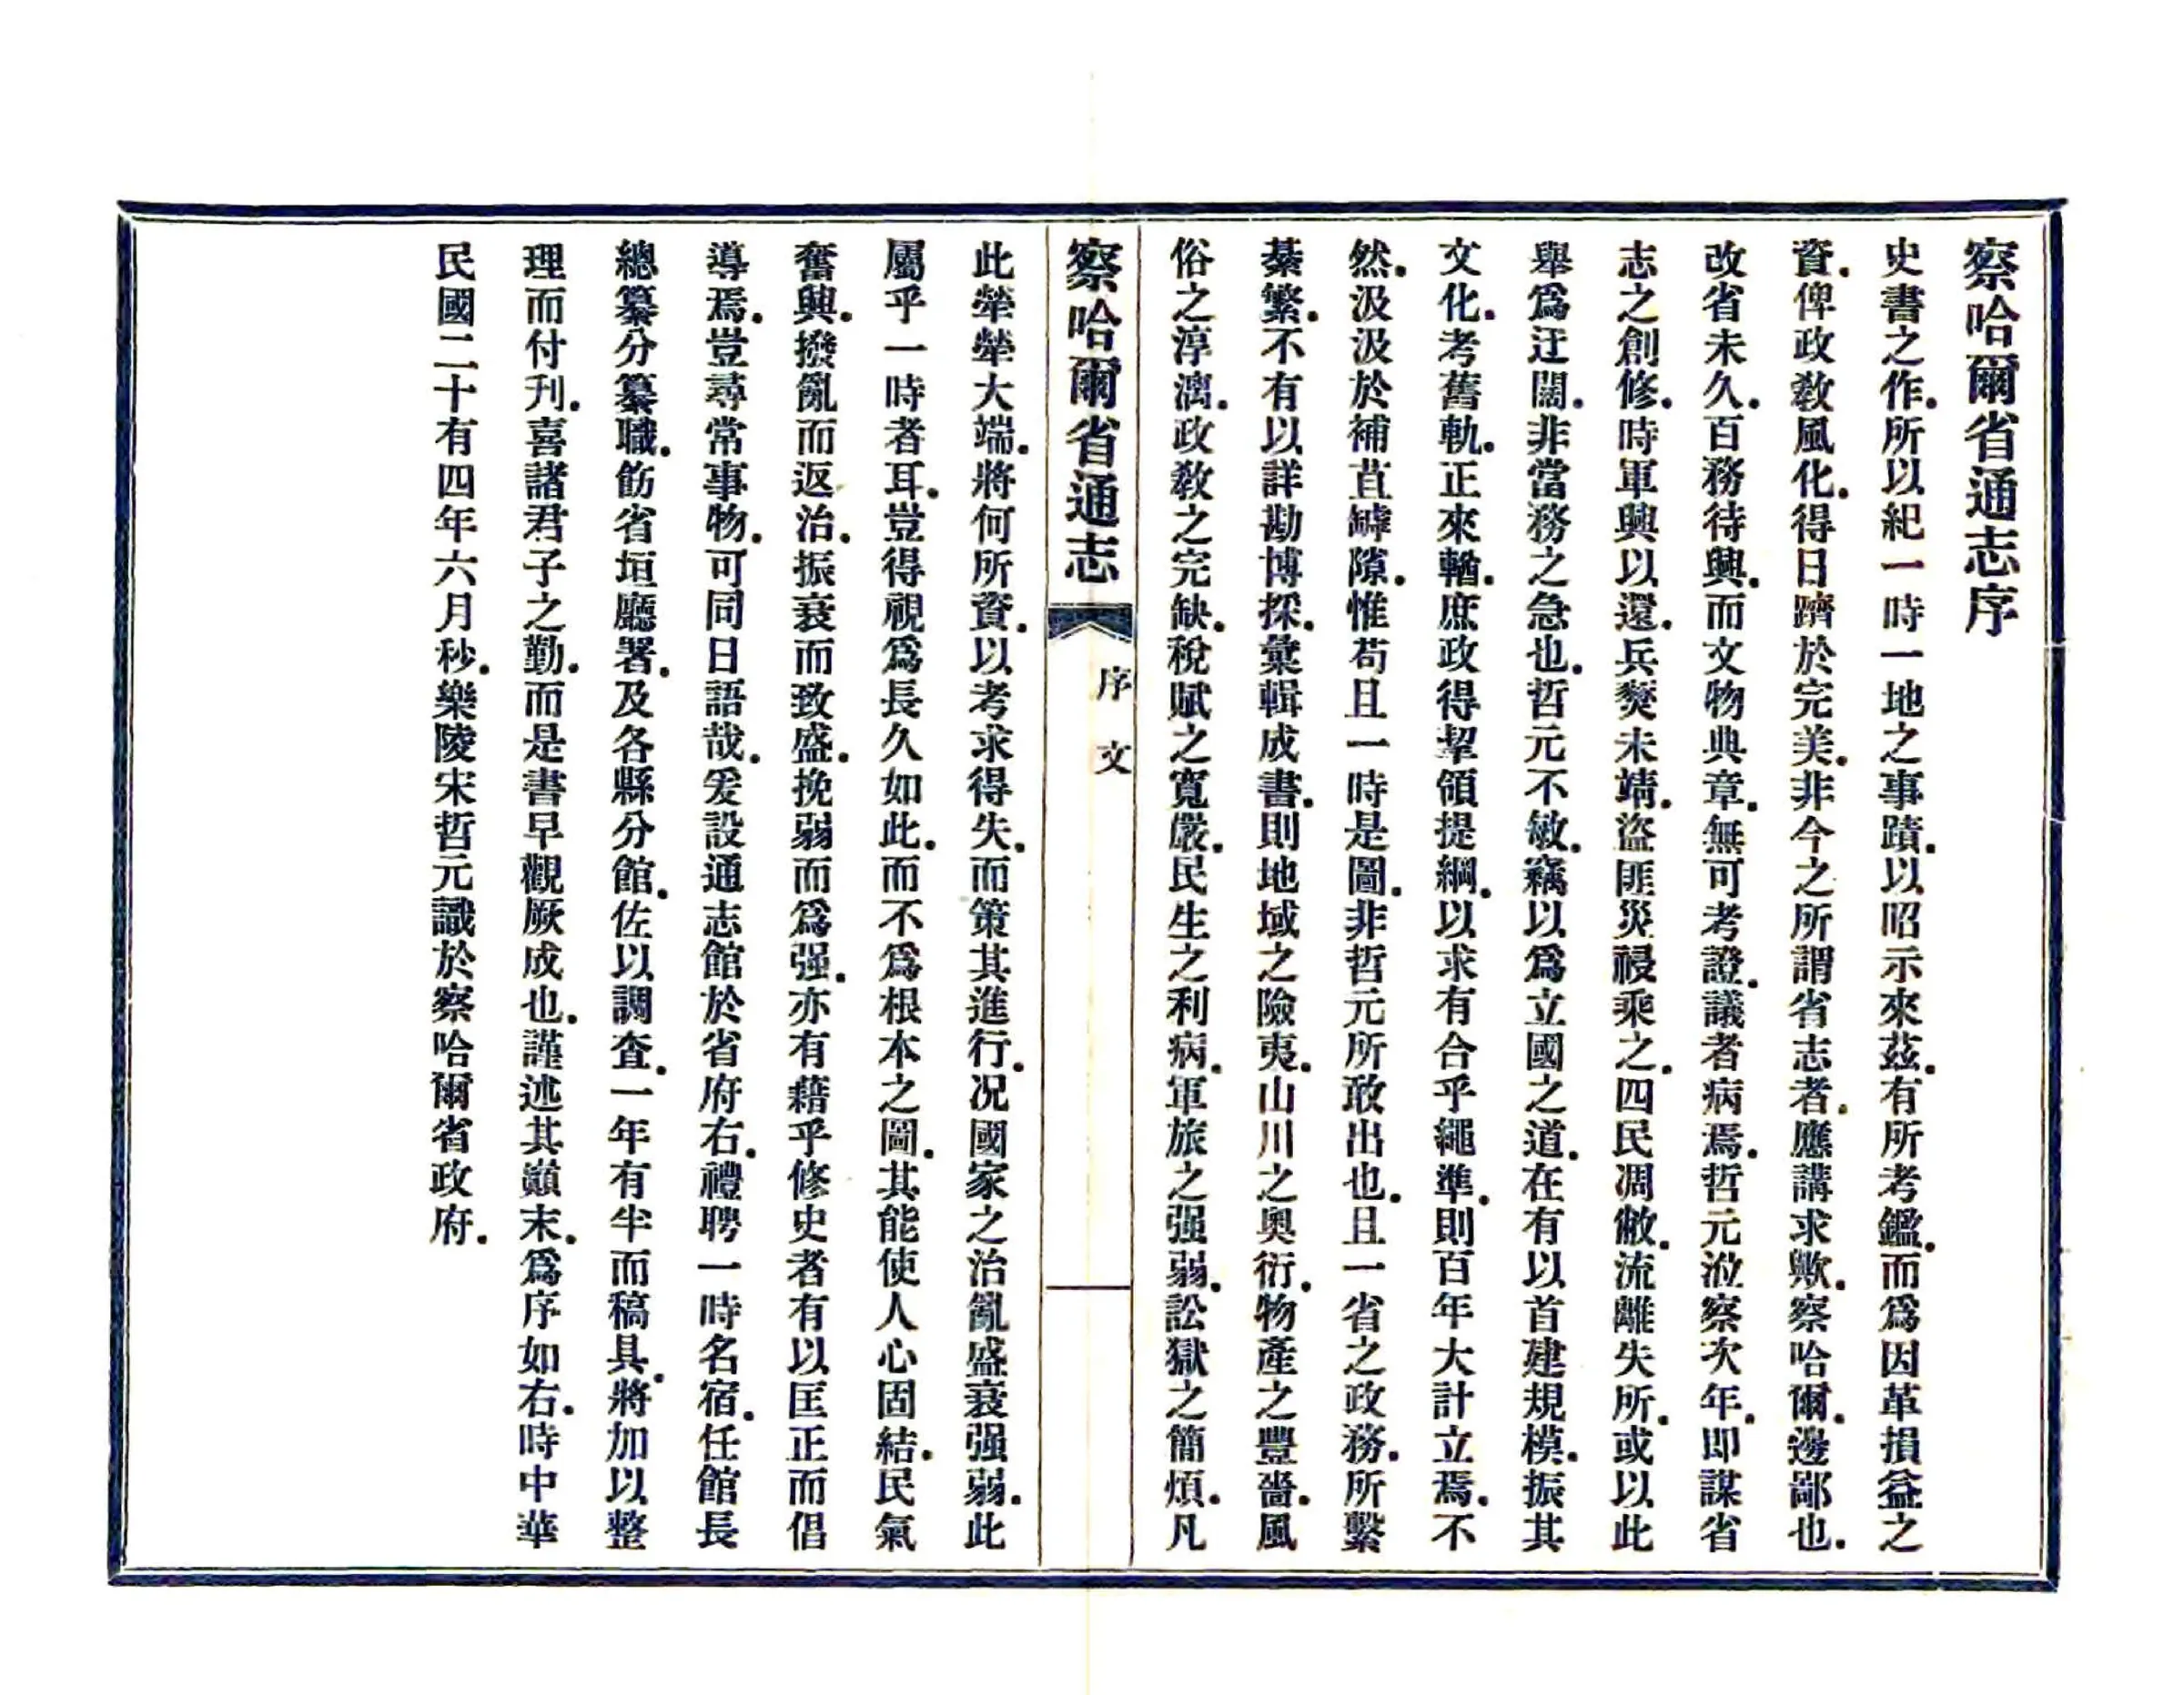 察哈爾省通志序
史書之作.所以紀一時一地之事蹟.以昭示來茲.有所考鑑.而爲因革損益之
資.俾政敎風化.得日躋於完美.非今之所謂省志者.應講求歟.察哈爾.邊鄙也.
改省未久.百務待興.而文物典章.無可考證.議者病焉.哲元涖察次年.即謀省
志之創修.時軍興以還.兵燹未靖.盜匪災祲乘之.四民凋敝.流離失所.或以此
舉爲迂闊.非當務之急也.哲元不敏.竊以爲立國之道.在有以首建規模.振其
文化.考舊軌.正來輶.庶政得挈領提綱.以求有合乎繩準.則百年大計立焉.不
然.汲汲於補苴罅隙.惟苟且一時是圖.非哲元所敢出也.且一省之政務.所繫
綦繁.不有以詳勘博採.彙輯成書.則地域之險夷.山川之奧衍.物產之豐嗇.風
俗之淳漓.政敎之完缺.稅賦之寬嚴.民生之利病.軍旅之强弱.訟獄之簡煩.凡
察哈爾省通志
序 文
此犖犖大端.將何所資.以考求得失.而策其進行.况國家之治亂盛衰强弱.此
屬乎一時者耳.豈得視爲長久如此.而不爲根本之圖.其能使人心固結.民氣
奮興.撥亂而返治.振衰而致盛.挽弱而爲强.亦有藉乎修史者有以匡正而倡
導焉.豈尋常事物.可同日語哉.爰設通志館於省府右.禮聘一時名宿.任館長
總纂分纂職.飭省垣廳署.及各縣分館.佐以調查.一年有半而稿具.將加以整
理而付刋.喜諸君子之勤.而是書早觀厥成也.謹述其巓末.爲序如右.時中華
民國二十有四年六月秒.樂陵宋哲元識於察哈爾省政府.